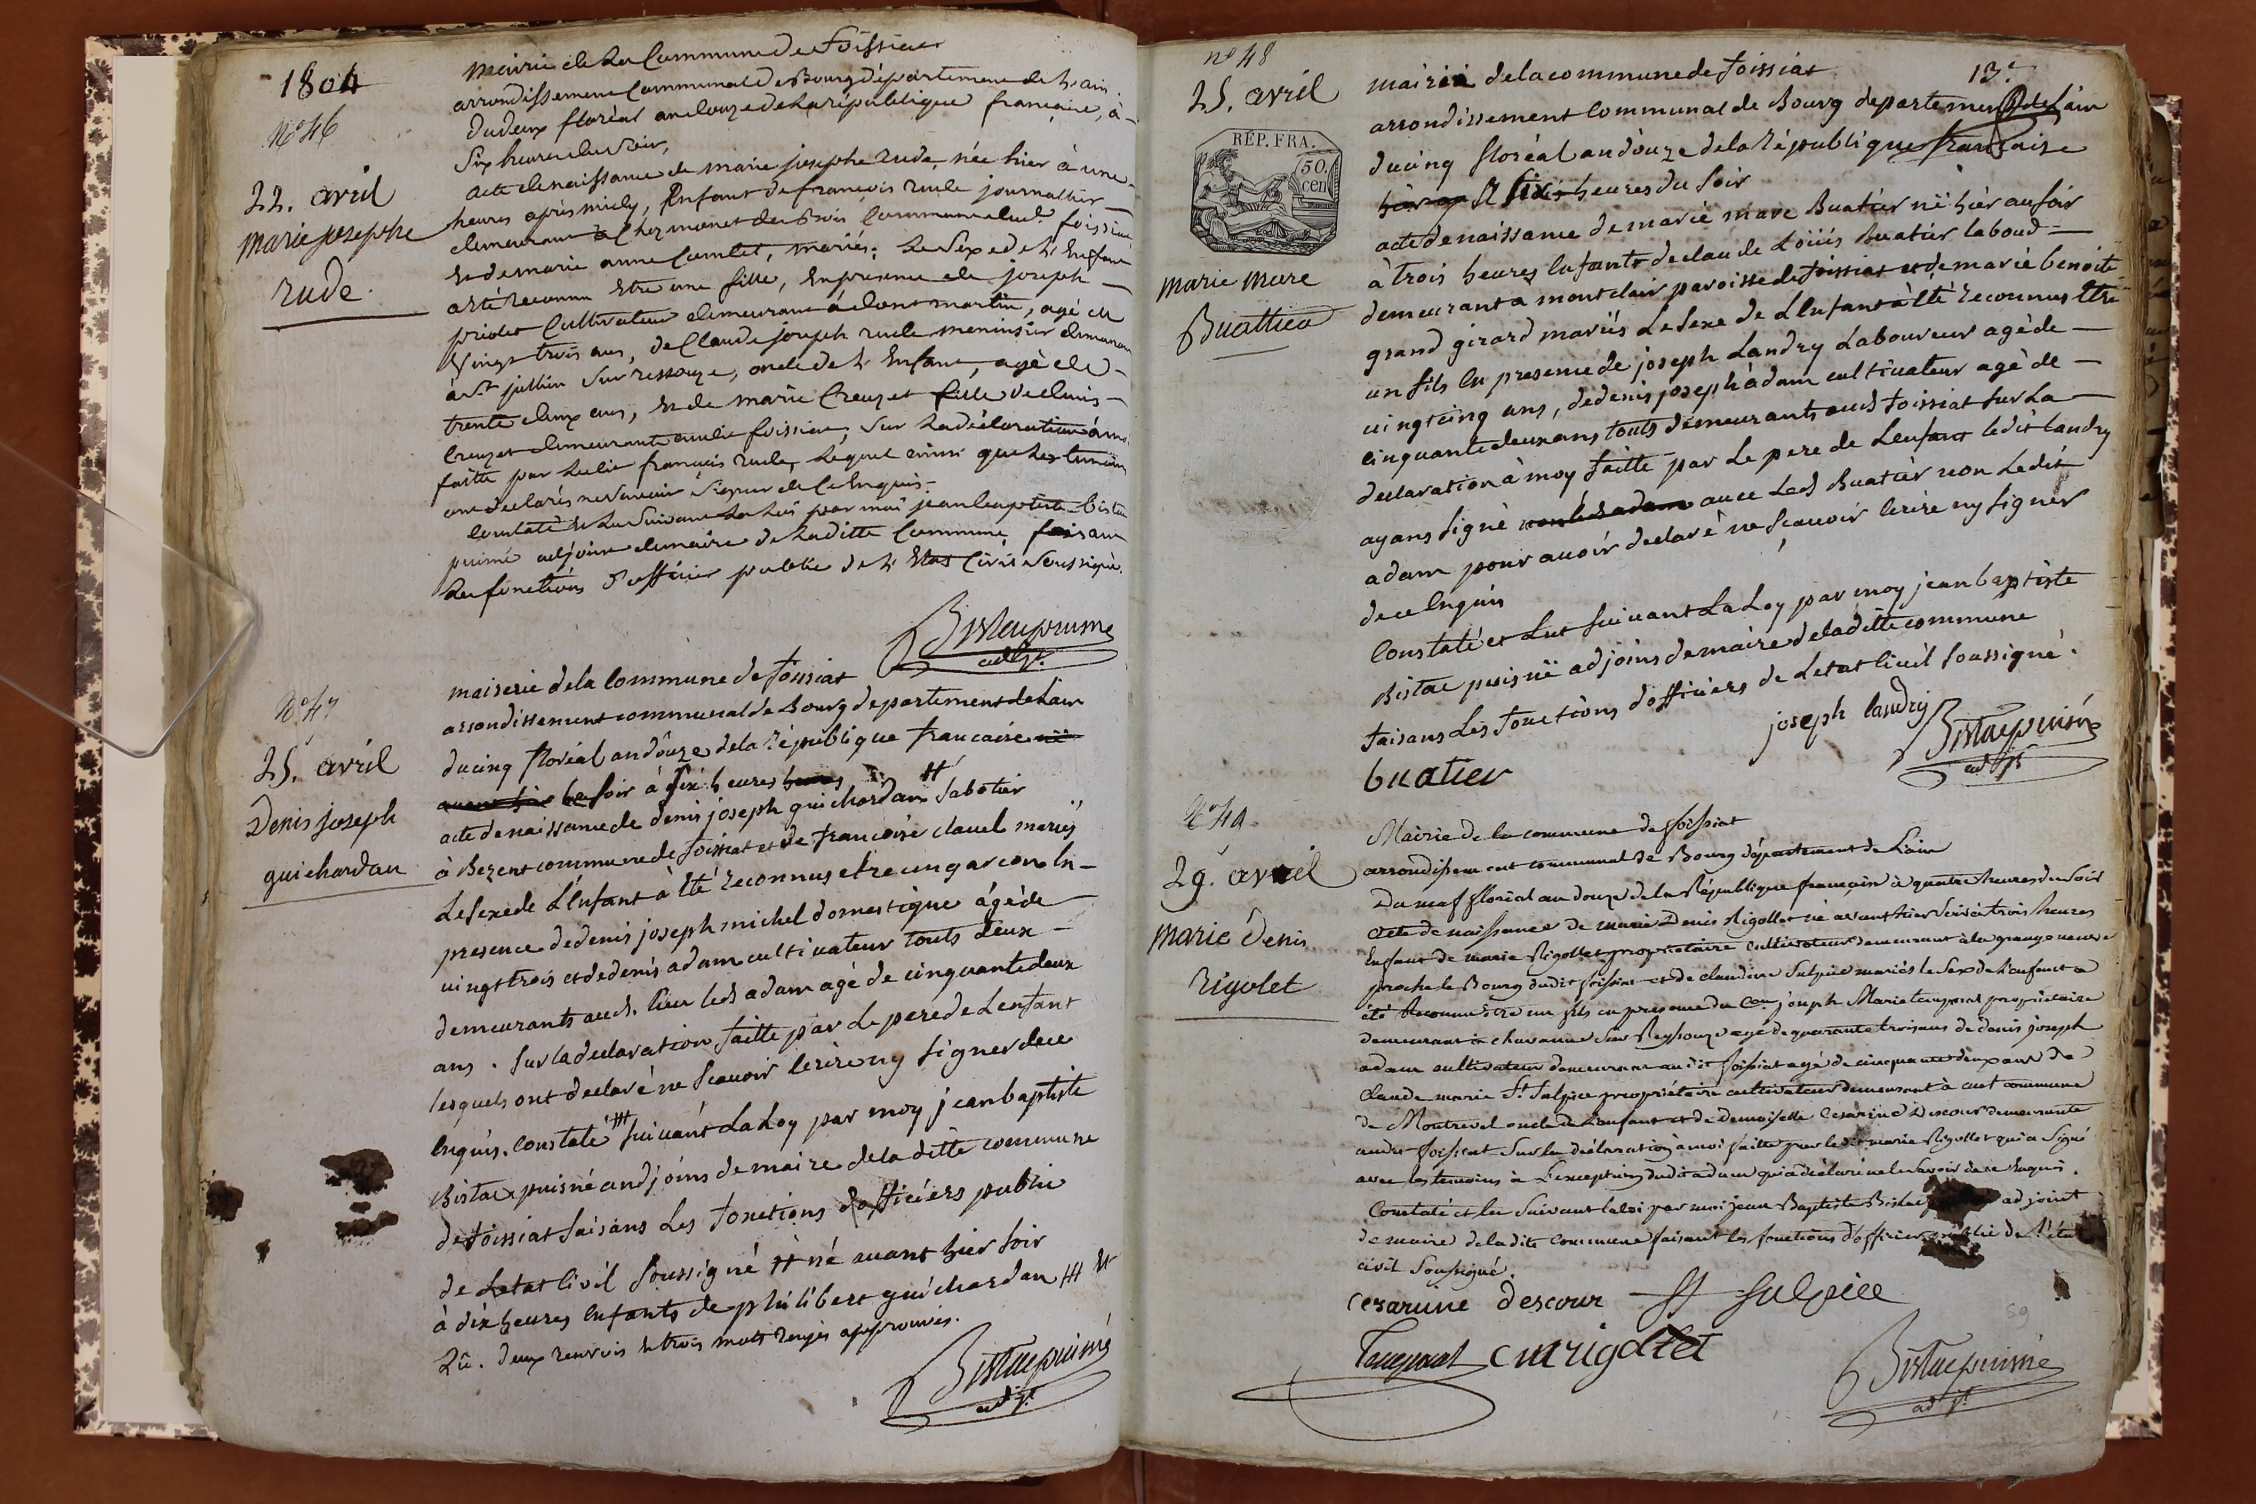 1804
N° 46
22. avril
marie josephe
rude
Mairie de La Commune de Foissiat
arrondissement Communal de Bourg département de L'ain.
du deux floréal an douze de La république française, à
Six heures du Soir,
acte de naissance de marie josephe rude, née hier à une
heures après midy, Enfant de françois rude journallier
demeurant à Chez monet des Bois Commune dud. foissiat
Et de marie anne Cantet, mariés; Le Sexe de L'Enfant
a été reconnu Etre une fille, En présence de joseph
priolet Cultivateur demeurant à dont martin, agé de
Vingt trois ans, de Claude joseph rude menuisier demeurant
à St jullien Sur ressouze, oncle de L'Enfant, agé de
trente deux ans, Et de marie Creuzet fille de denis
Creuzet demeurante audit foissiat, Sur La déclaration à moi
faitte par Ledit françois rude, Lequel ainsi que Les temoins
ont declarés ne Savoir Signer de Ce Enquis.
Constaté Et Lu Suivant La Loi par moi jean baptiste bistac
puiné adjoint de maire de Laditte Commune faisant
Les fonctions d'officier public de L'Etat Civil Soussigné.
Bistac puiné
adjt.
N° 47
25. avril
Denis joseph
guichardan
mairerie de la Commune de foissiat
arrondissement communal de Bourg departement de Lain
du cinq floréal an douze de la République francaise né
avant hier le soir à six heures
acte de naissance de denis joseph guichardan # sabotier
à Bezent commune de foissiat et de francoise clavel mariés
Le sexe de L'Enfant à Eté Reconnus etre un garcon En
presence de denis joseph michel domestique âgé de
vingt trois et de denis adam cultivateur touts deux
demeurants aud. lieu led adam agé de cinquante deux
ans. sur la declaration faitte par Le pere de Lenfant
lesquels ont declaré ne scavoir lerire ny signer dece
Enquis. Constaté ## suivant La Loy par moy jean baptiste
Bistac puisné andjoins de maire de la ditte commune
de foissiat faisans Les fonctions dofficiérs public
de Letat Civil soussigné # né avant hier soir
à dix heures enfants de philibert guichardan ## Et
Lu. deux renvois Et trois mots rayés approuvés.
Bistac puiné
adjt.
n° 48
25. avril
RÉP. FRA.
50.
cen
marie marc
Buattier
13e.
mairie de la commune de foissiat
arrondissement Communal de Bourg departement de Lain
du cinq floréal an douze de la République francaise
à six heures du soir
acte de naissance de marie marc Buatier né hier au soir
à trois heures Enfants de claude Louis Buatier laboud=
demeurant à montclair paroisse de foissiat et de marie benoite
grand girard mariés Le sexe de L'Enfant à Eté Reconnus Etre
un fils En presence de joseph Landry Laboureur agé de
vingt cinq ans, de denis joseph adam cultivateur agé de
cinquante deux ans touts demeurants aud foissiat sur La
declaration à moy faitte par Le pere de Lenfant ledit landry
ayans signé avec Led Buatier non Ledit
adam pour avoir declaré ne scavoir lerire ny signer
de ce Enquis
Constaté et Lut suivant La Loy par moy jean baptiste
Bistac puisné adjoins de maire de la ditte commune
faisans Les fonctions d'officiers de Letat Civil soussigné.
joseph landry
Bistac puisné
adjt
buatier
N° 49
29. avril
marie denis
rigolet
Mairie de la commune de foissiat
arrondissement communal de Bourg département de L'ain
Du neuf floréal an douze de la République française à quatre heures du Soir
Acte de naissance de marie Denis Rigollet né avant hier Soir à trois heures
Enfant de marie Rigollet propriétaire cultivateur demeurant à la grange neuve
proche le Bourg dudit foissiat et de claudine Sulpice mariés le Sexe de L'enfant a
été Reconnu être un fils en présence du Cen joseph Marie temporal propriétaire
demeurant à chavanne Sur Reyssouze agé de quarante trois ans de denis joseph
adam cultivateur demeurant audit foissiat agé de cinquante deux ans de
Claude marie St Sulpice propriétaire cultivateur demeurant à cuet commune
de Montrevel oncle de L'enfant et de demoiselle Cesarine Descour demeurante
audit foissiat Sur la déclaration à moi faitte par ledit marie Rigollet qui a Signé
avec les temoins à L'exception dudit adam qui a déclaré ne le Savoir de ce Enquis.
Constaté et lu Suivant la loi par moi jean Baptiste Bistac adjoint
de maire de la dite Commune faisant les fonctions d'officier public de L'état
civil Soussigné.
cesarine descour St Sulpice
Temporal cm rigollet
Bistac puiné
adjt
59